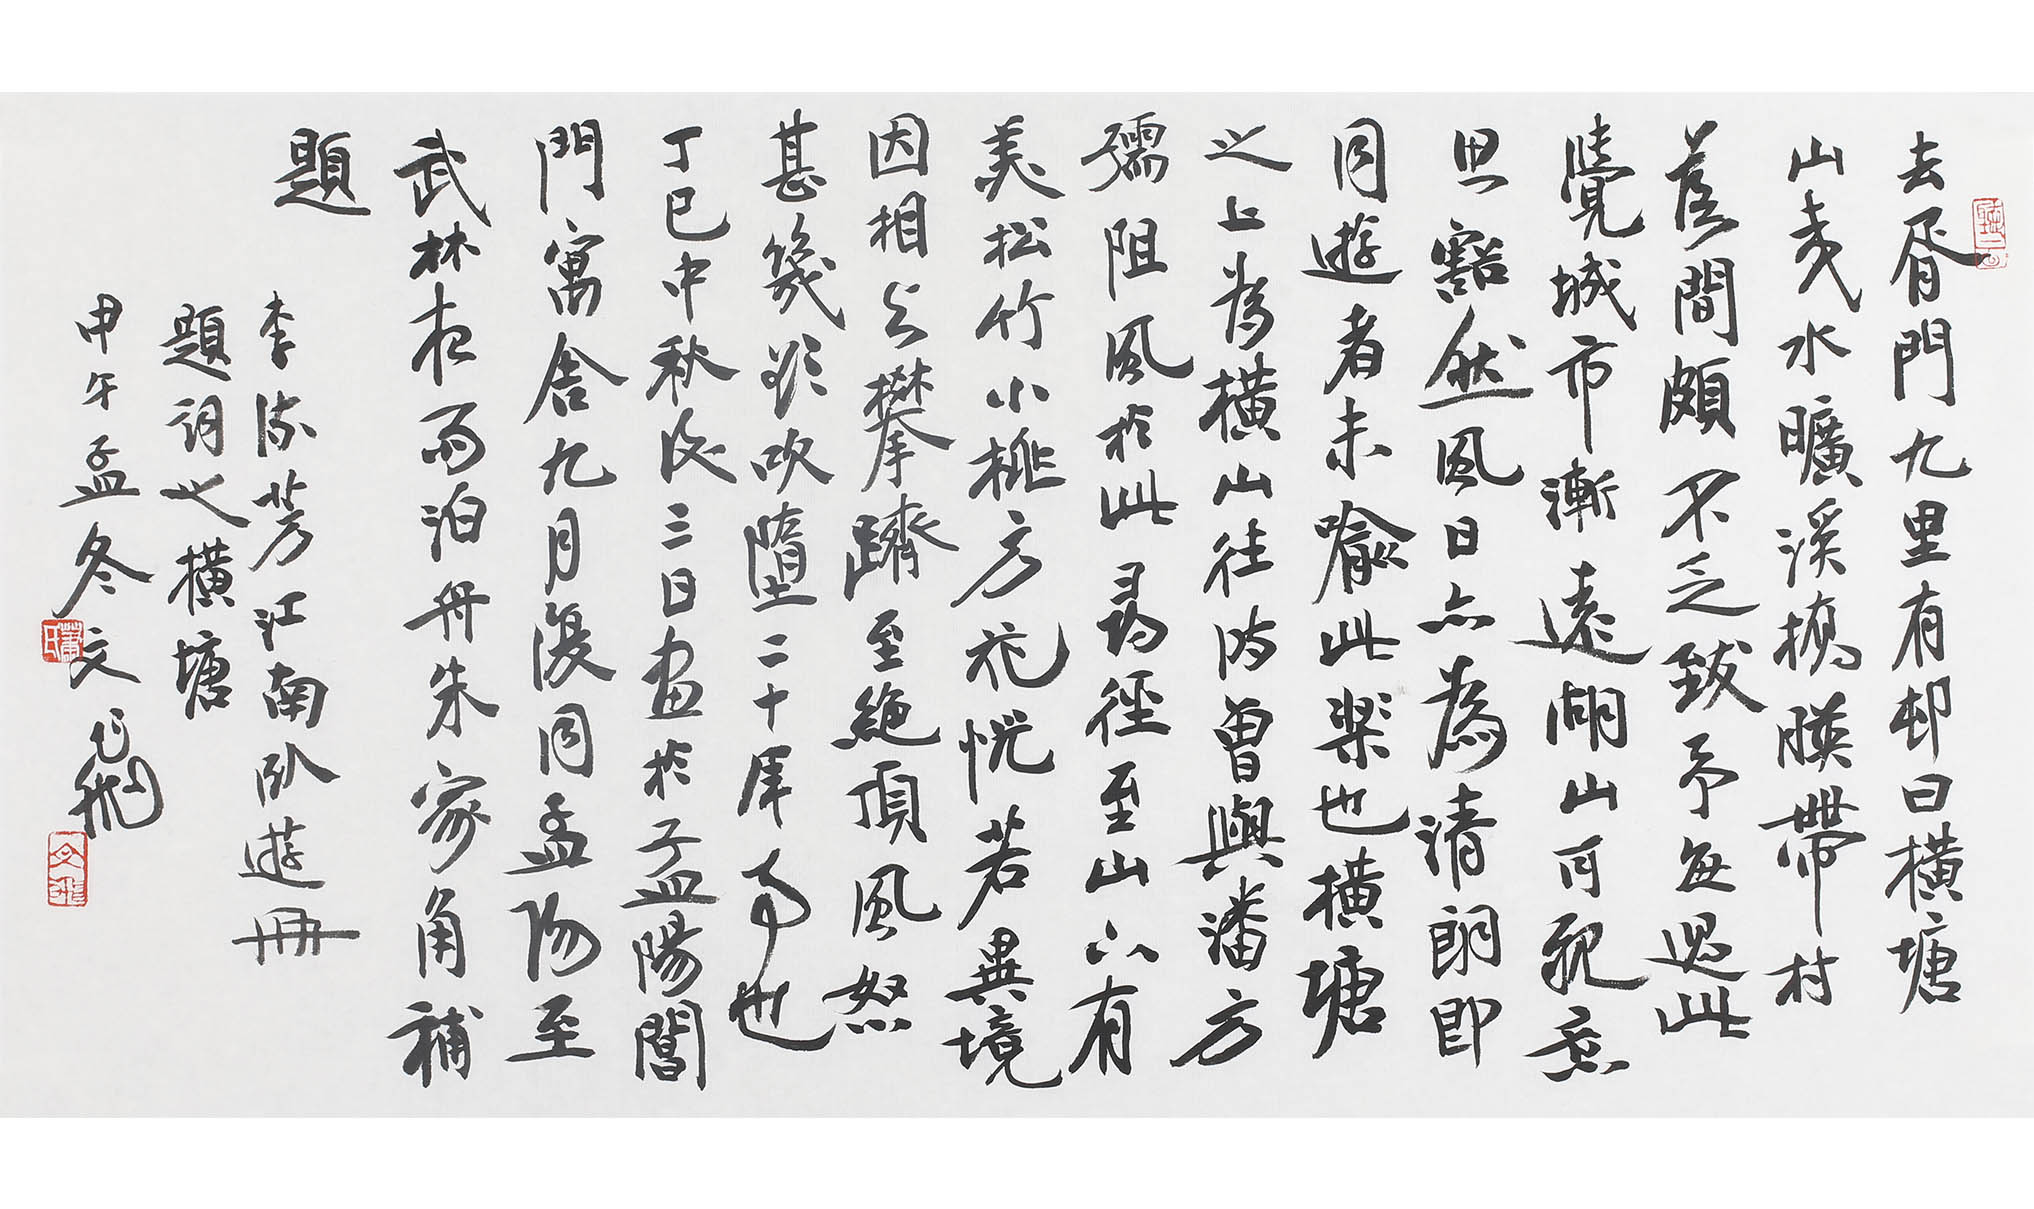 去胥門九里有邨曰橫塘
山夷水曠溪橋映帶村
落間頗不乏致予每過此
覺城市漸遠湖山可親意
思豁然風日亦為清朗即
同遊者未喻此樂也橫塘
之上為橫山往時曾與潘方
孺阻風於此尋徑至山下有
美松竹小桃方花恍若異境
因相與攀躋至絕頂風怒
甚幾欲吹墮二十年事也
丁巳中秋後三日畫於孟陽閶
門寓舍九月復同孟陽至
武林夜雨泊舟朱家角補
題
李流芳江南臥遊冊
題詞之橫塘
甲午孟冬文飛